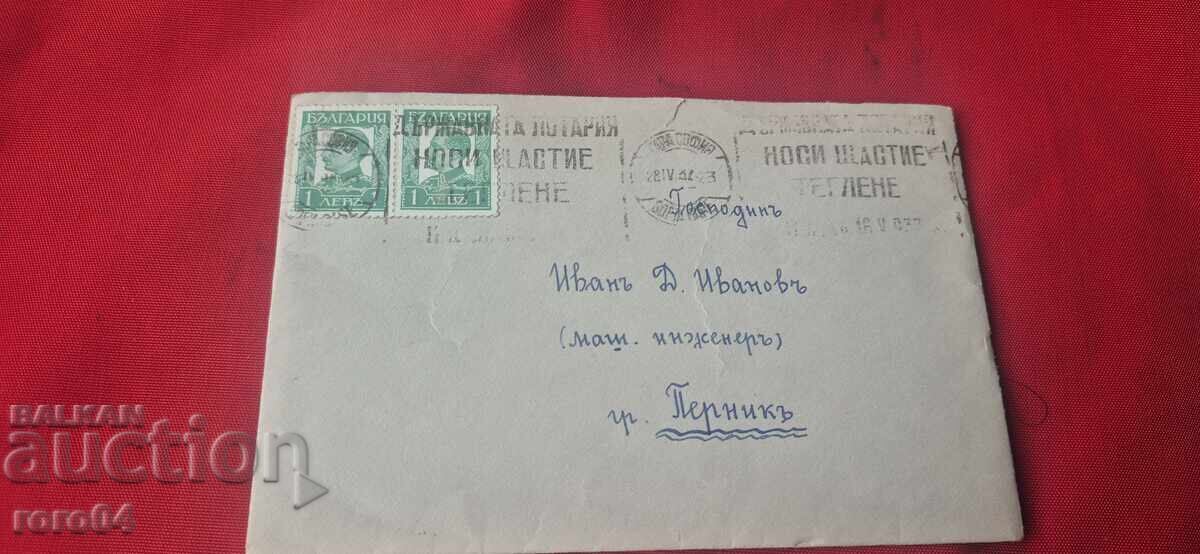 БЪЛГАРИЯ БЪЛГАРИЯ
1 ЛЕВЪ 1 ЛЕВЪ 1
ДЪРЖАВНАТА ЛОТАРИЯ
НОСИ ЩАСТИЕ
ТЕГЛЕНЕ
СОФИЯ
28 IV 37-23
ДЪРЖАВНАТА ЛОТАРИЯ
НОСИ ЩАСТИЕ
ТЕГЛЕНЕ
16 V 937
Господинъ
Иванъ Д. Ивановъ
(маш. инженеръ)
гр. Перникъ
BALKAN
auction
roro64